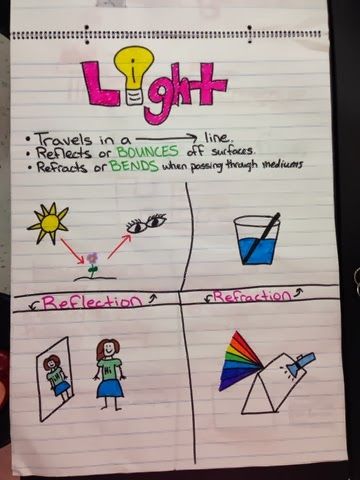 Light
• Travels in a → line.
• Reflects or BOUNCES off surfaces.
• Refracts or BENDS when passing through mediums
Reflection
Refraction
Hi